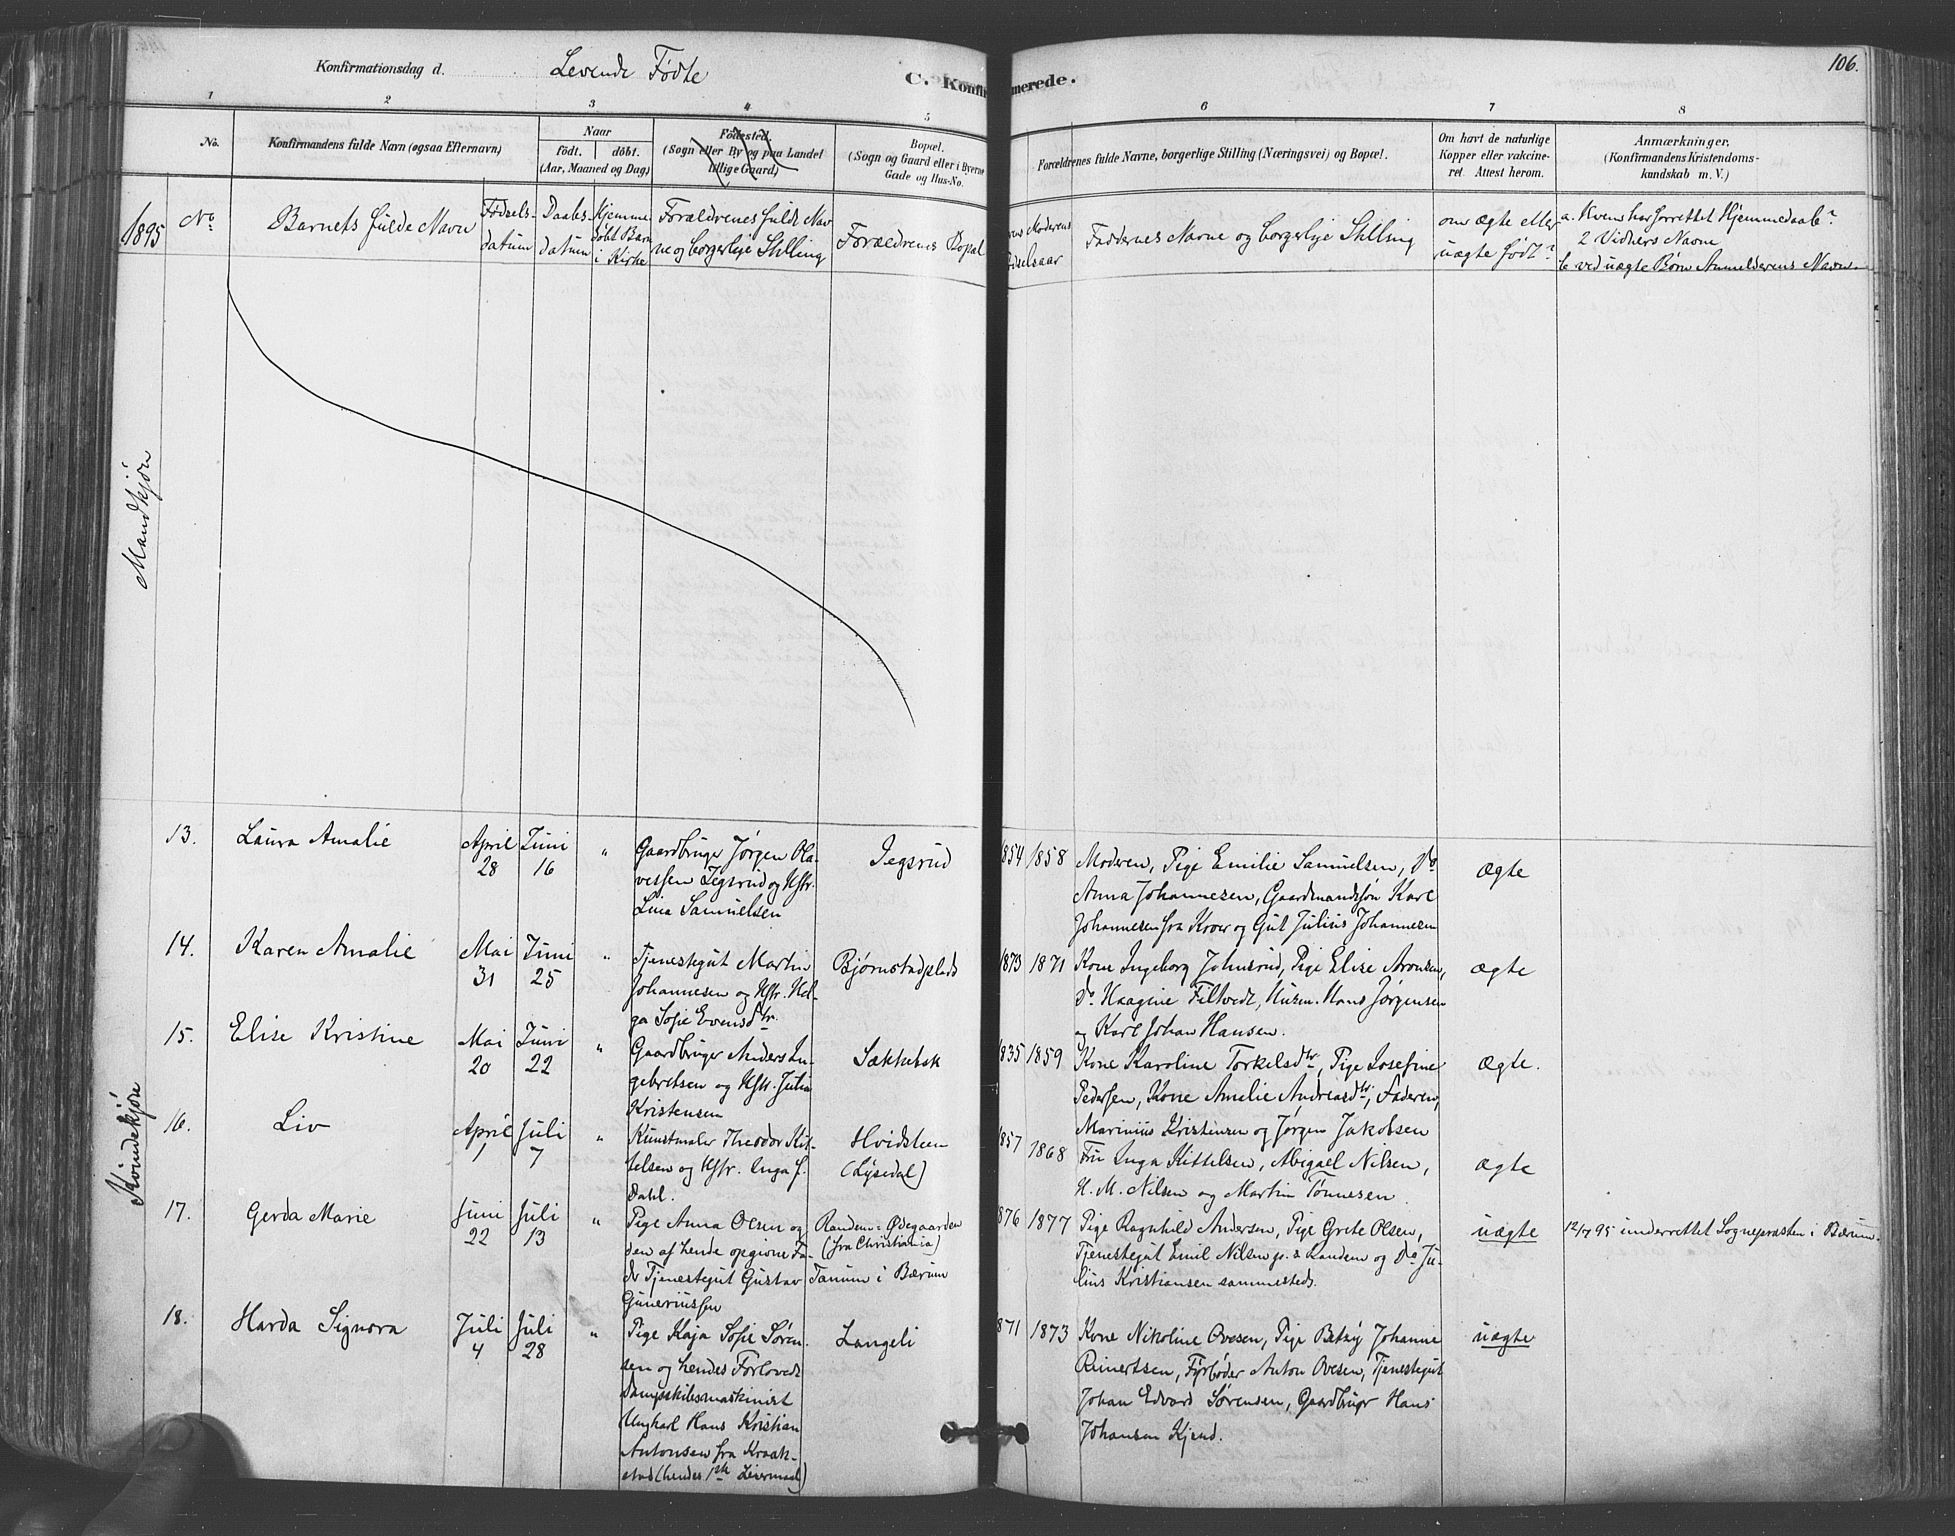 106.
Konfirmationsdag d. Levende Fødte C. Konfirmerede.
1 2 3 4 5 6 7 8
No.
Konfirmandens fulde Navn (ogsaa Efternavn)
Naar
født. døbt.
(Aar, Maaned og Dag)
Fødested.
(Sogn eller By og paa Landet
tillige Gaard)
Bopæl.
(Sogn og Gaard eller i Byerne
Gade og Hus-No.
Forældrenes fulde Navne, borgerlige Stilling (Næringsvei) og Bopæl.
Om havt de naturlige
Kopper eller vakcine-
ret. Attest herom.
Anmærkninger.
(Konfirmandens Kristendoms-
kundskab m. V.)
1895
No
Barnets fulde Navn
Fødsels-
datum
Daabs-
datum
Hjemme
døbt Barn
i Kirke
Forældrenes fulde Nav
ne og borgerlige Stilling
Forældrenes Bopæl
Moderens
Fødselsaar
Faddernes Navne og borgerlige Stilling
om ægte eller
uægte født?
a. Hvem har forrettet Hjemmedaab?
2 Vidners Navne
b ved uægte Børn Anmelderens Navn
Mandkjøn
Kvindekjøn
13. Laura Amalie
April
28
Juni
16
"
Gaardbruger Jørgen Ola-
vessen Jegsrud og Hstr.
Lina Samuelsen
Jegsrud
1854 1858
Moderen, Pige Emilie Samuelsen, Do
Anna Johannesen, Gaardmandssøn Karl
Johannesen fra Kroer og Gut Julius Johannesen
ægte
14. Karen Amalie
Mai
31
Juni
25
"
Tjenestegut Martin
Johannesen og Hstr. Hel-
ga Sofie Evensdtr.
Bjørnstadplads
1873 1871
Kone Ingeborg Johnsrud, Pige Elise Aronsen,
Do Haagine Filtvedt, Husm. Hans Jørgensen
og Karl Johan Hansen.
ægte
15. Elise Kristine
Mai
20
Juni
22
"
Gaardbruger Anders In-
gebretsen og Hstr. Julia
Kristensen
Sækkebæk
1835 1859
Kone Karoline Torkelsdtr, Pige Josefine
Pedersen, Kone Amelie Andreasdtr, Faderen,
Marinius Kristensen og Jørgen Jakobsen
ægte.
16. Liv
April
1
Juli
7
"
Kunstmaler Theodor Kit-
telsen og Hstr. Inga f.
Dahl.
Hvidsteen
(Lysedal)
1857 1868
Fru Inga Kittelsen, Abigael Nilsen,
H. M. Nilsen og Martin Tønnesen
ægte
17. Gerda Marie
Juni
22
Juli
13
"
Pige Anna Olsen og
den af hende opgivne Fa-
der Tjenestegut Gustav
Guneriussen
Randem-Ødegaarden
(fra Christiania)
Tanum i Bærum
1876 1877
Pige Ragnhild Andersen, Pige Grete Olsen,
Tjenestegut Emil Nilsen p. s Randem og Do Ju-
lius Kristiansen sammesteds.
uægte
12/7 95 underrettet Sognepræsten i Bærum.
18. Harda Signora
Juli
4
Juli
28
"
Pige Kaja Sofie Søren-
sen og hendes Forlovede
Dampskibsmaskinist
Ungkarl Hans Kristian
Antonsen fra Kraak-
stad (hendes 1ste Leiermaal)
Langeli
1871 1873
Kone Nikoline Ovesen, Pige Betzy Johanne
Reinertsen, Fyrbøder Anton Ovesen, Tjenestegut
Johan Edvard Sørensen, Gaardbruger Hans
Johansen Kjend.
uægte